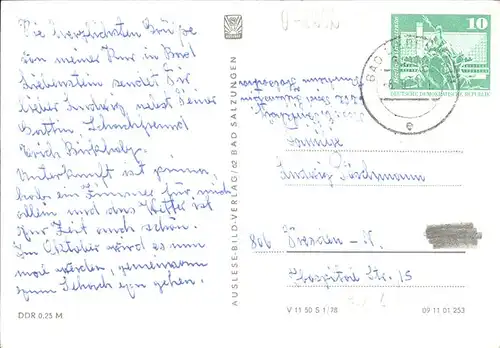 Die herzlichsten Grüße
von meiner Kur in Bad
Liebenstein sendet Dir
lieber Ludwig nebst Deiner
Gattin, Schachfreund
Erich
Unterkunft ist prima,
habe ein Zimmer für mich
allein und das Wetter ist
zur Zeit auch schön.
Im Oktober wird es nun
mal werden, gemeinsam
zum Schach gehen.
DDR 0,25 M
AUSLESE-BILD-VERLAG / 62 BAD SALZUNGEN
10
DEUTSCHE DEMOKRATISCHE REPUBLIK
BAD
e
Familie
Ludwig
806 Dresden - N.
Hospital Str. 15
V 11 50 S 1/78
09 11 01 253